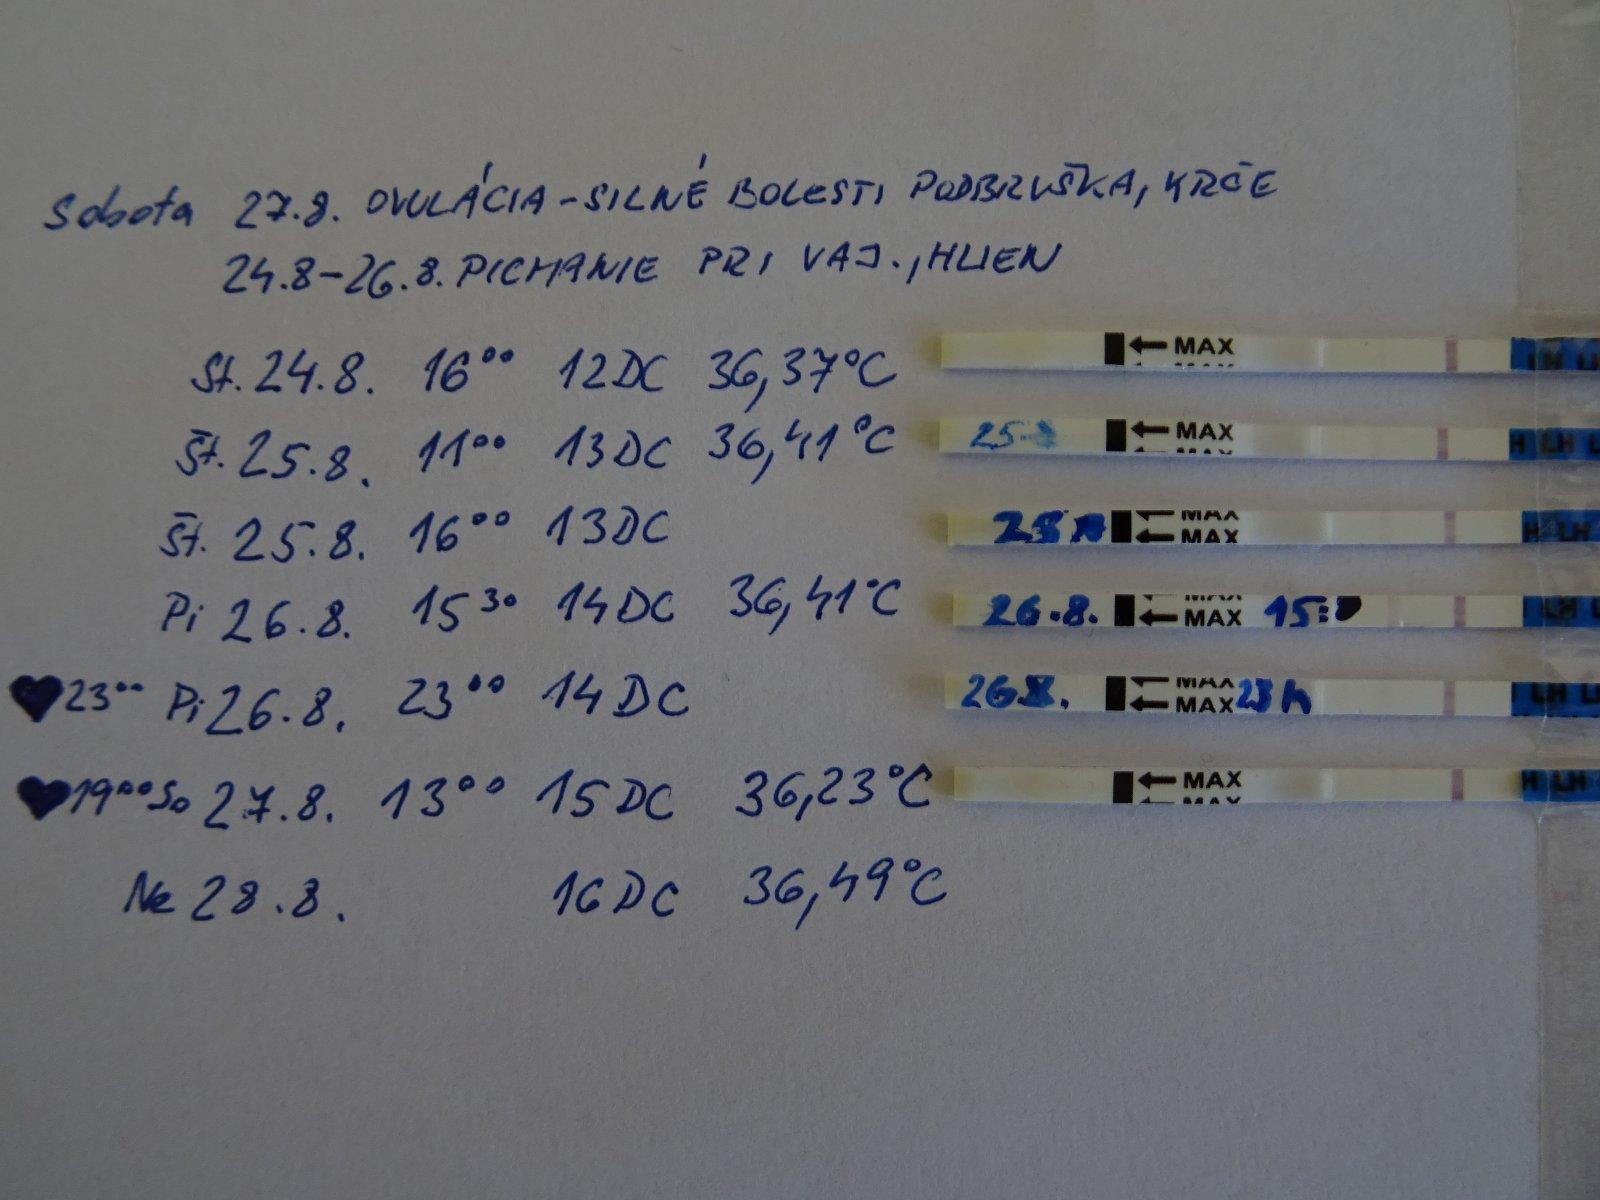 Sobota 27.8. OVULÁCIA - SILNÉ BOLESTI PODBRUŠKA, KRČE
24.8-26.8. PICHANIE PRI VAJ., HLIEN
St. 24.8. 16⁰⁰ 12DC 36,37°C ← MAX LH
Št. 25.8. 11⁰⁰ 13DC 36,41°C 25.8 ← MAX H LH L
Št. 25.8. 16⁰⁰ 13DC ← MAX ← MAX H LH
Pi 26.8. 15³⁰ 14DC 36,41°C 26.8. ← MAX ← MAX LH
♥ 23⁰⁰ Pi 26.8. 23⁰⁰ 14DC ← MAX ← MAX 23h LH L
♥ 19⁰⁰ So 27.8. 13⁰⁰ 15DC 36,23°C ← MAX H LH
Ne 28.8. 16DC 36,49°C